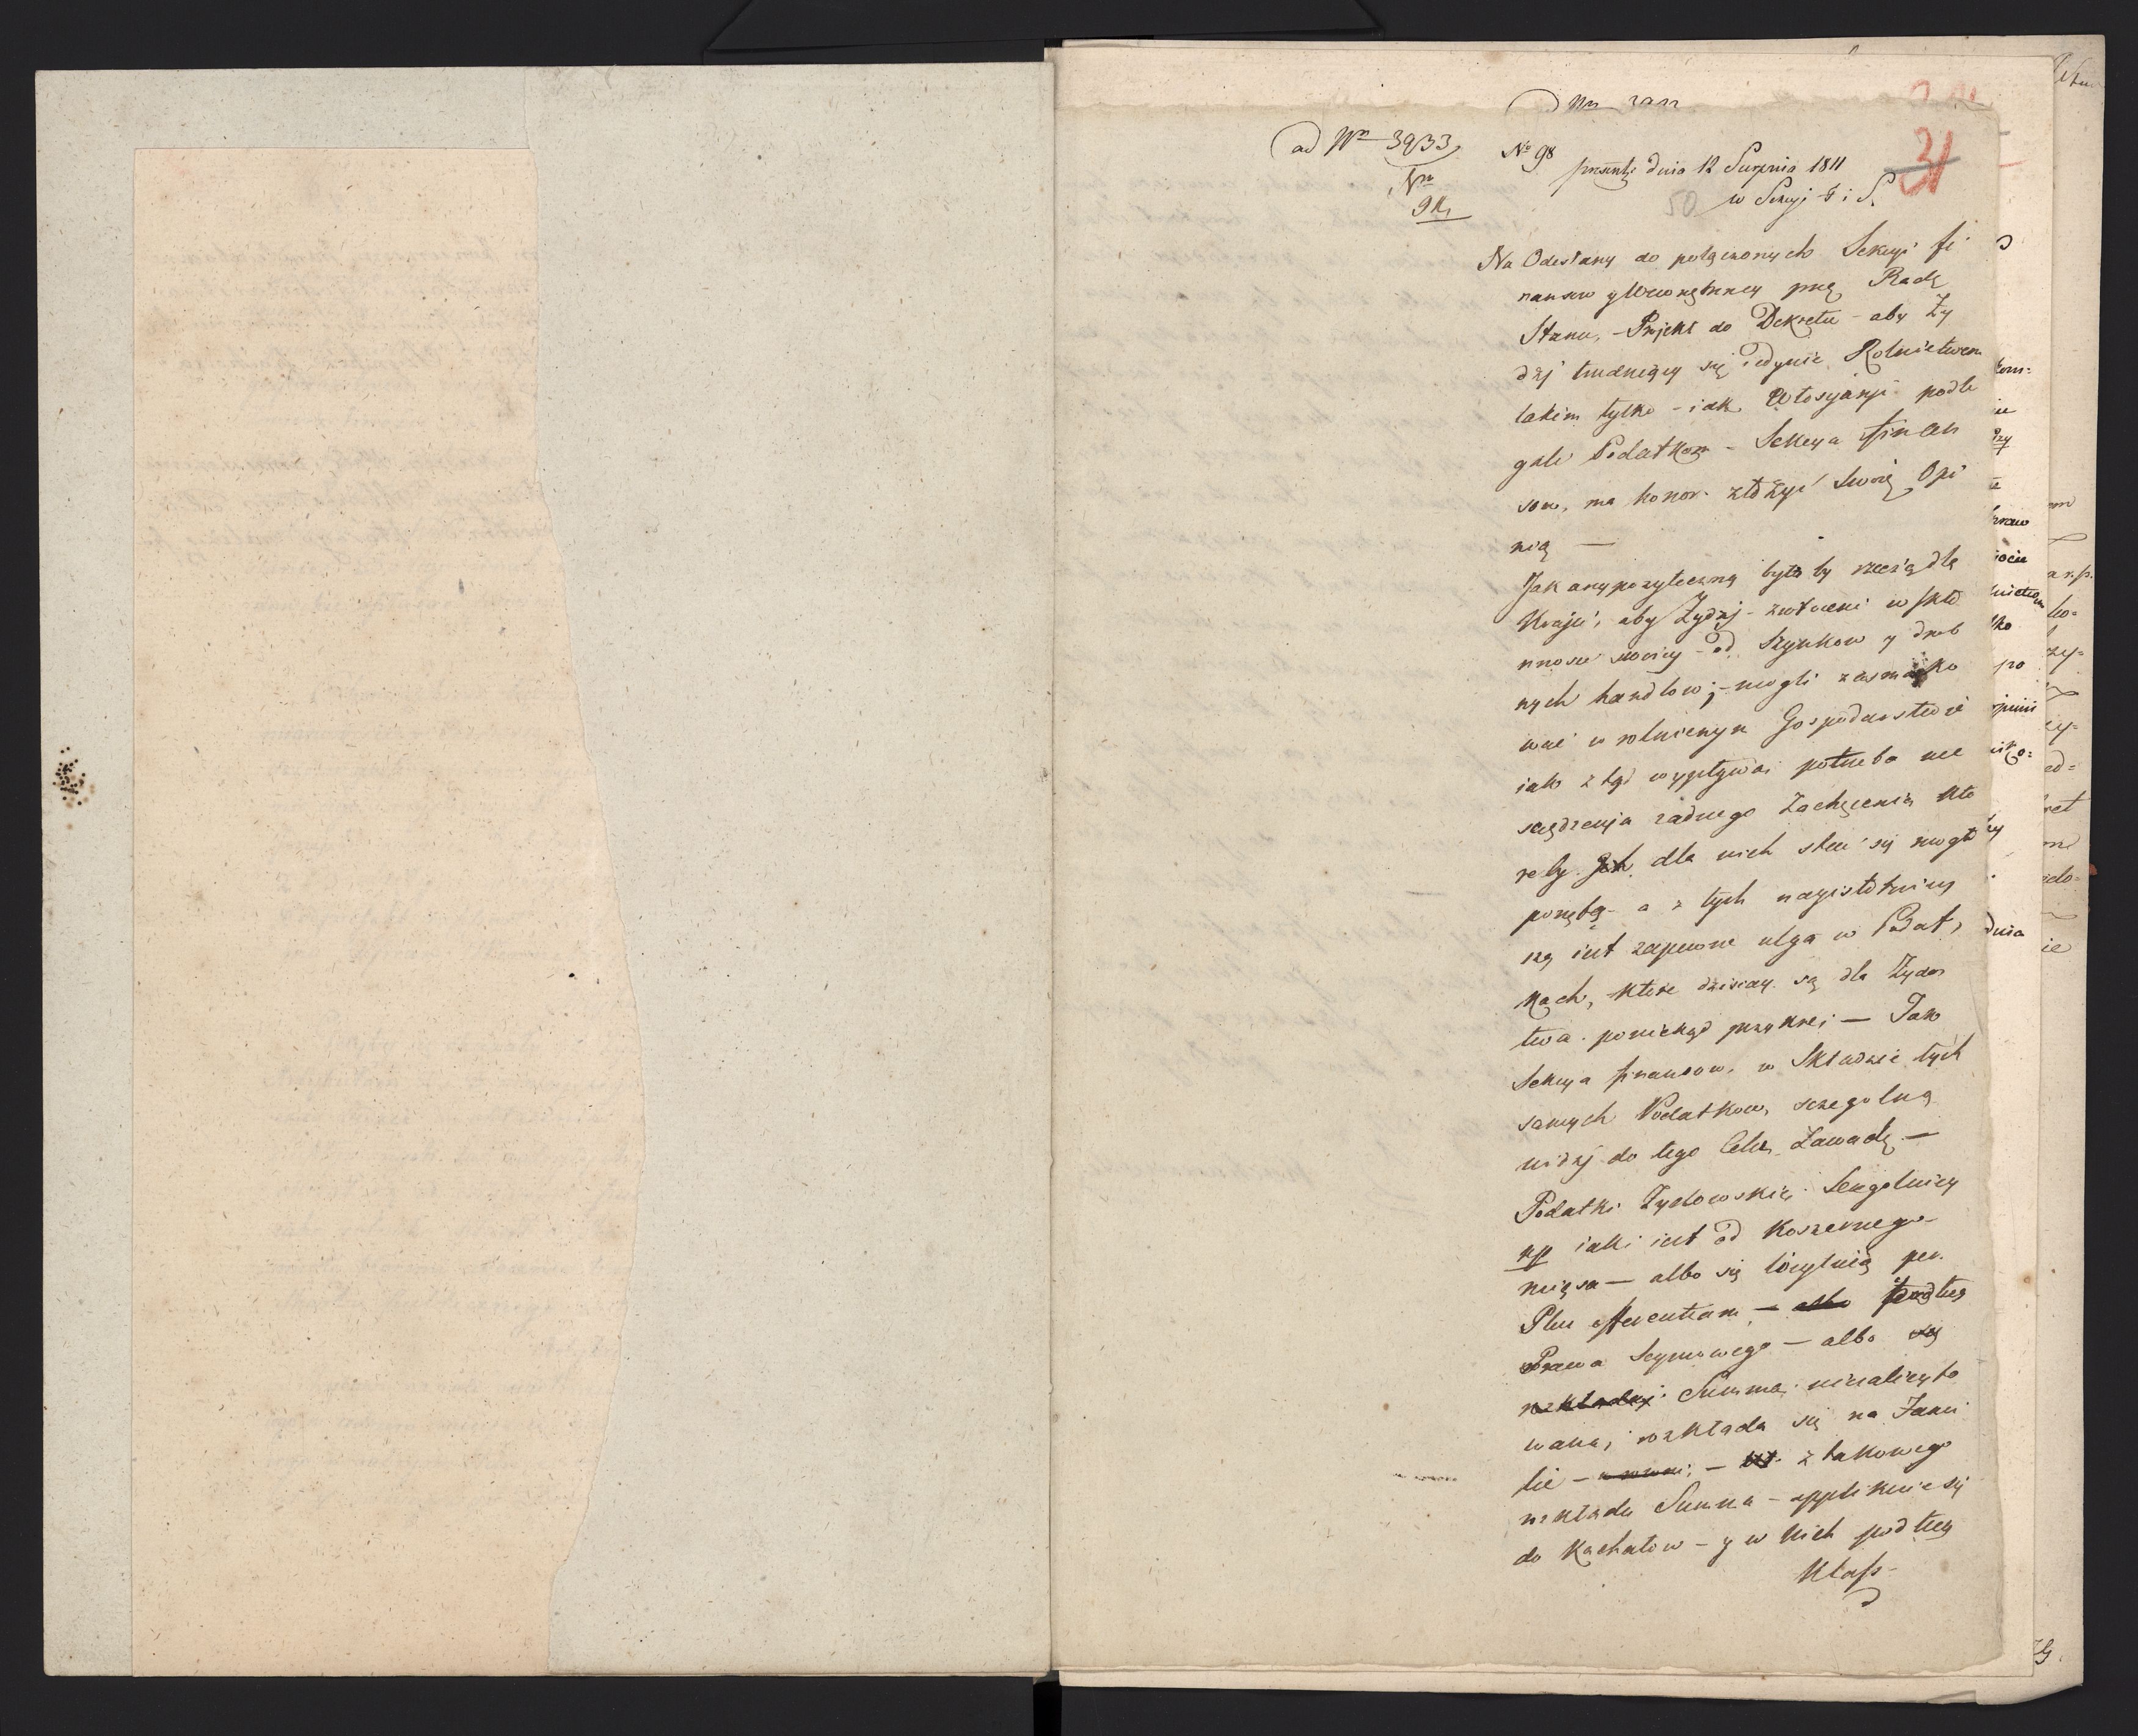 ad Nro 3933
Nro
94
No 98
presentz dnia 12 Sierpnia 1811
w Sekcyi F i S
50
31
Na Odesłany do połączonych Sekcyi fi
nansow y Wewnętrzney przez Radę
Stanu, - Projekt do Dekretu - aby Ży
dzi trudniący się Jedynie Rolnictwem
takim tylko - iak Włosyanie podle
gali Podatkom - Sekcya finan
sow, ma honor złożyć Swoię Opi
nią —
Jak naypozyteczną byłoby rzeczą dla
Kraju, aby Żydzi - zwroceni w skło
nnosci swoiey - od Szynkow y drob
nych handlow; - mogli zasmako
wać w rolniczym Gospodarstwie
iak z tąd wypływa potrzeba nie
sczędzenia zadnego Zachęcenia kto
reby dla nich stać się mogło
ponętą - a z tych nayistotniey
szą iest zapewne ulga w Podat,
kach, ktore dzisiay są dla Żydos
twa poniekąd przykre; — Jako
Sekcya finansow, w Składzie tych
samych Podatkow, szczegolną
widzi do tego Celu Zawadę —
Podatki Żydowskie Sczegolniey
np iaki iest od Koszernego
mięsa — albo się licytuią per
Plus offerentiam — albo podług
Prawa Seymowego — albo
rozkładay Summa niealicyto
wana, rozkłada się na Fami
lie - z takowego
rozkładu Summa - applikuie się
do Kachałow - y w Nich podług
Klass-
dnia